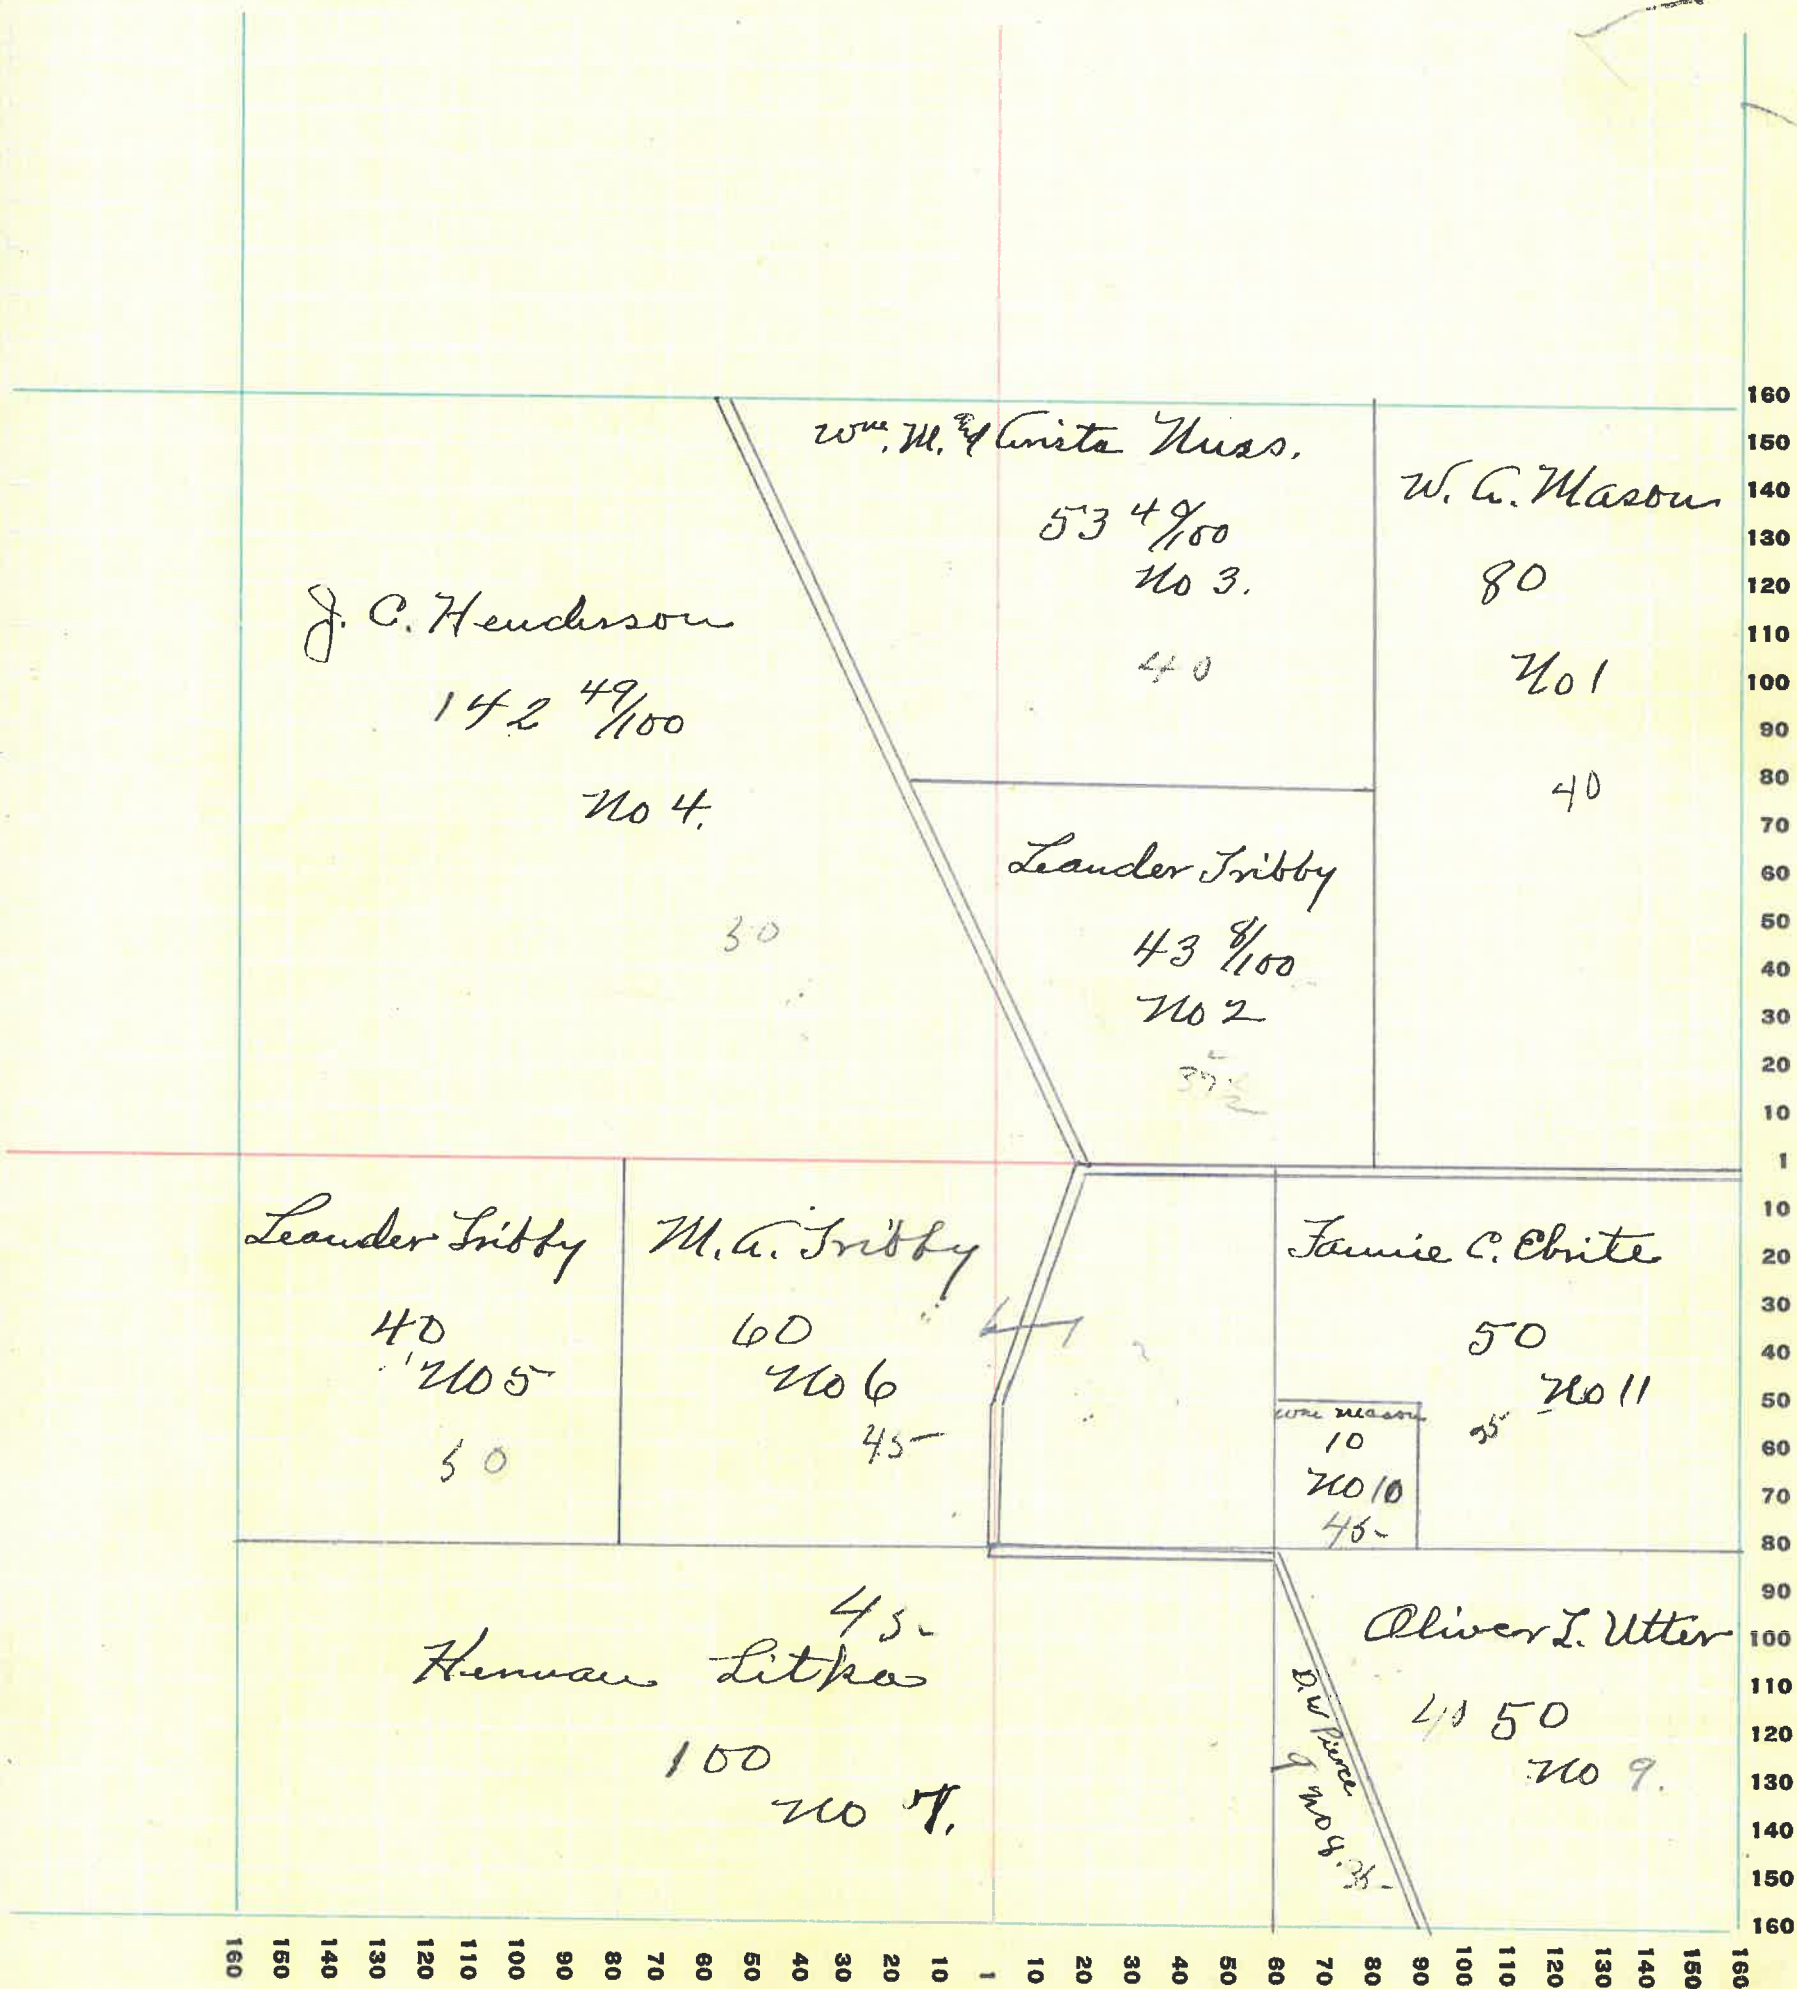 Wm. M. & Anista Nuss.
53 49/100
No 3.
40
W. A. Mason
80
No 1
40
J. C. Henderson
142 49/100
No 4.
50
Leander Tribby
43 8/100
No 2
Leander Tribby
40
No 5
50
M. A. Tribby
60
No 6
45-
Fannie C. Ebrite
50
No 11
35
Wm Mason
10
No 10
45-
45-
Herman Litka
100
No 7.
D. W Pierce
9 No 8. 35-
Oliver L. Utter
40 50
No 9.
160
150
140
130
120
110
100
90
80
70
60
50
40
30
20
10
1
10
20
30
40
50
60
70
80
90
100
110
120
130
140
150
160
160 150 140 130 120 110 100 90 80 70 60 50 40 30 20 10 1 10 20 30 40 50 60 70 80 90 100 110 120 130 140 150 160